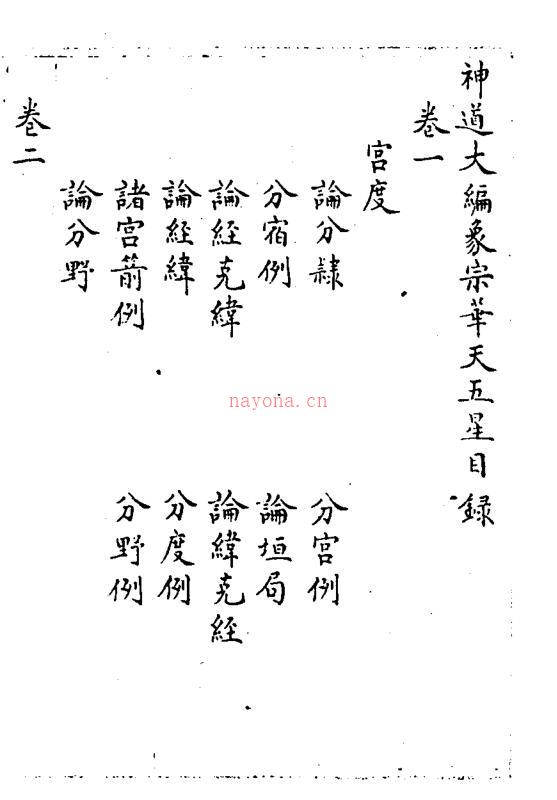 神道大編象宗華天五星目録
卷一
宮度
論分隸
分宮例
分宿例
論垣局
論經克緯
論緯克經
論經緯
分度例
諸宮箭例
分野例
論分野
卷二
nayona.cn